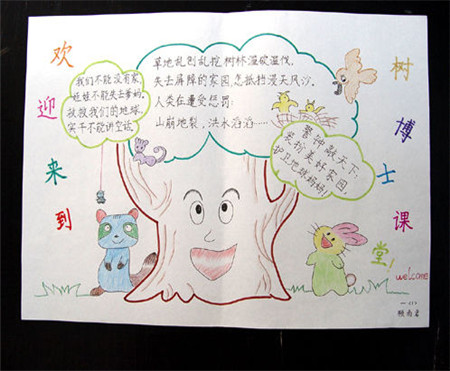 欢迎来到
我们不能没有家,
娃娃不能失去爹妈.
救救我们的地球,
实干不能讲空话.
草地乱刨乱挖树林滥砍滥伐,
失去屏障的家园怎抵挡漫天风沙.
人类在遭受惩罚:
山崩地裂,洪水滔滔……
警钟敲天下,
美好家园,
护卫地球妈妈!
树博士课堂!
welcome